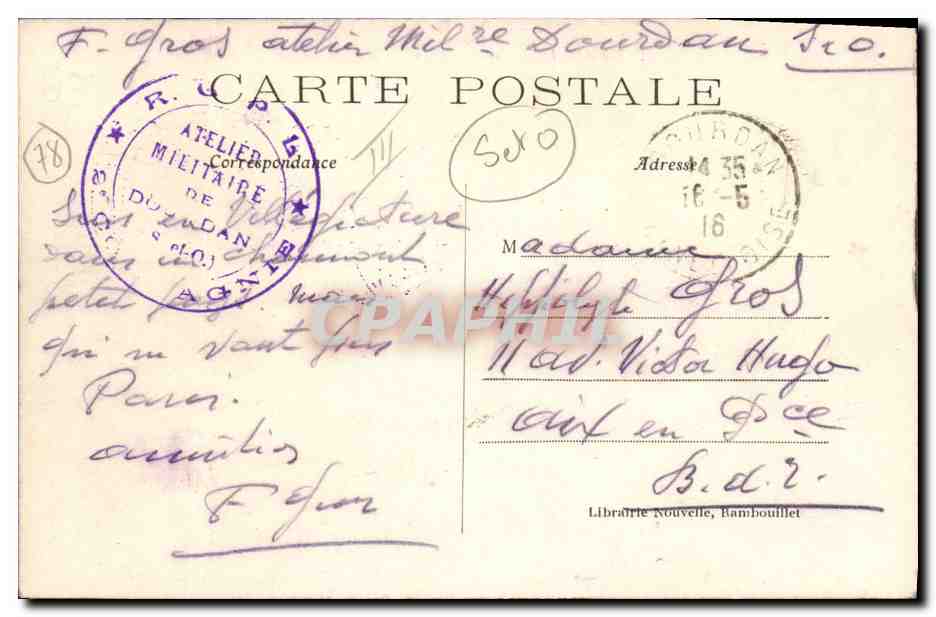 F. Gros atelier Milre Dourdan S&O.
CARTE POSTALE
R. G. P. L
ATELIER
MILITAIRE
DE
DOURDAN
(S.et.O.)
AGNIE
78
III
Set O
Correspondance
Adresse
DOURDAN
14 35
16 -5
16
OISE
Suis en Villégiature
dans un charmant
petit pays. mais
qui ne vaut pas
Paris.
amitiés
F Gros
Madame
Hippolyte Gros
11 av. Victor Hugo
Aix en Pce
B.d.R.
CPAPHIL
Librairie Nouvelle, Rambouillet